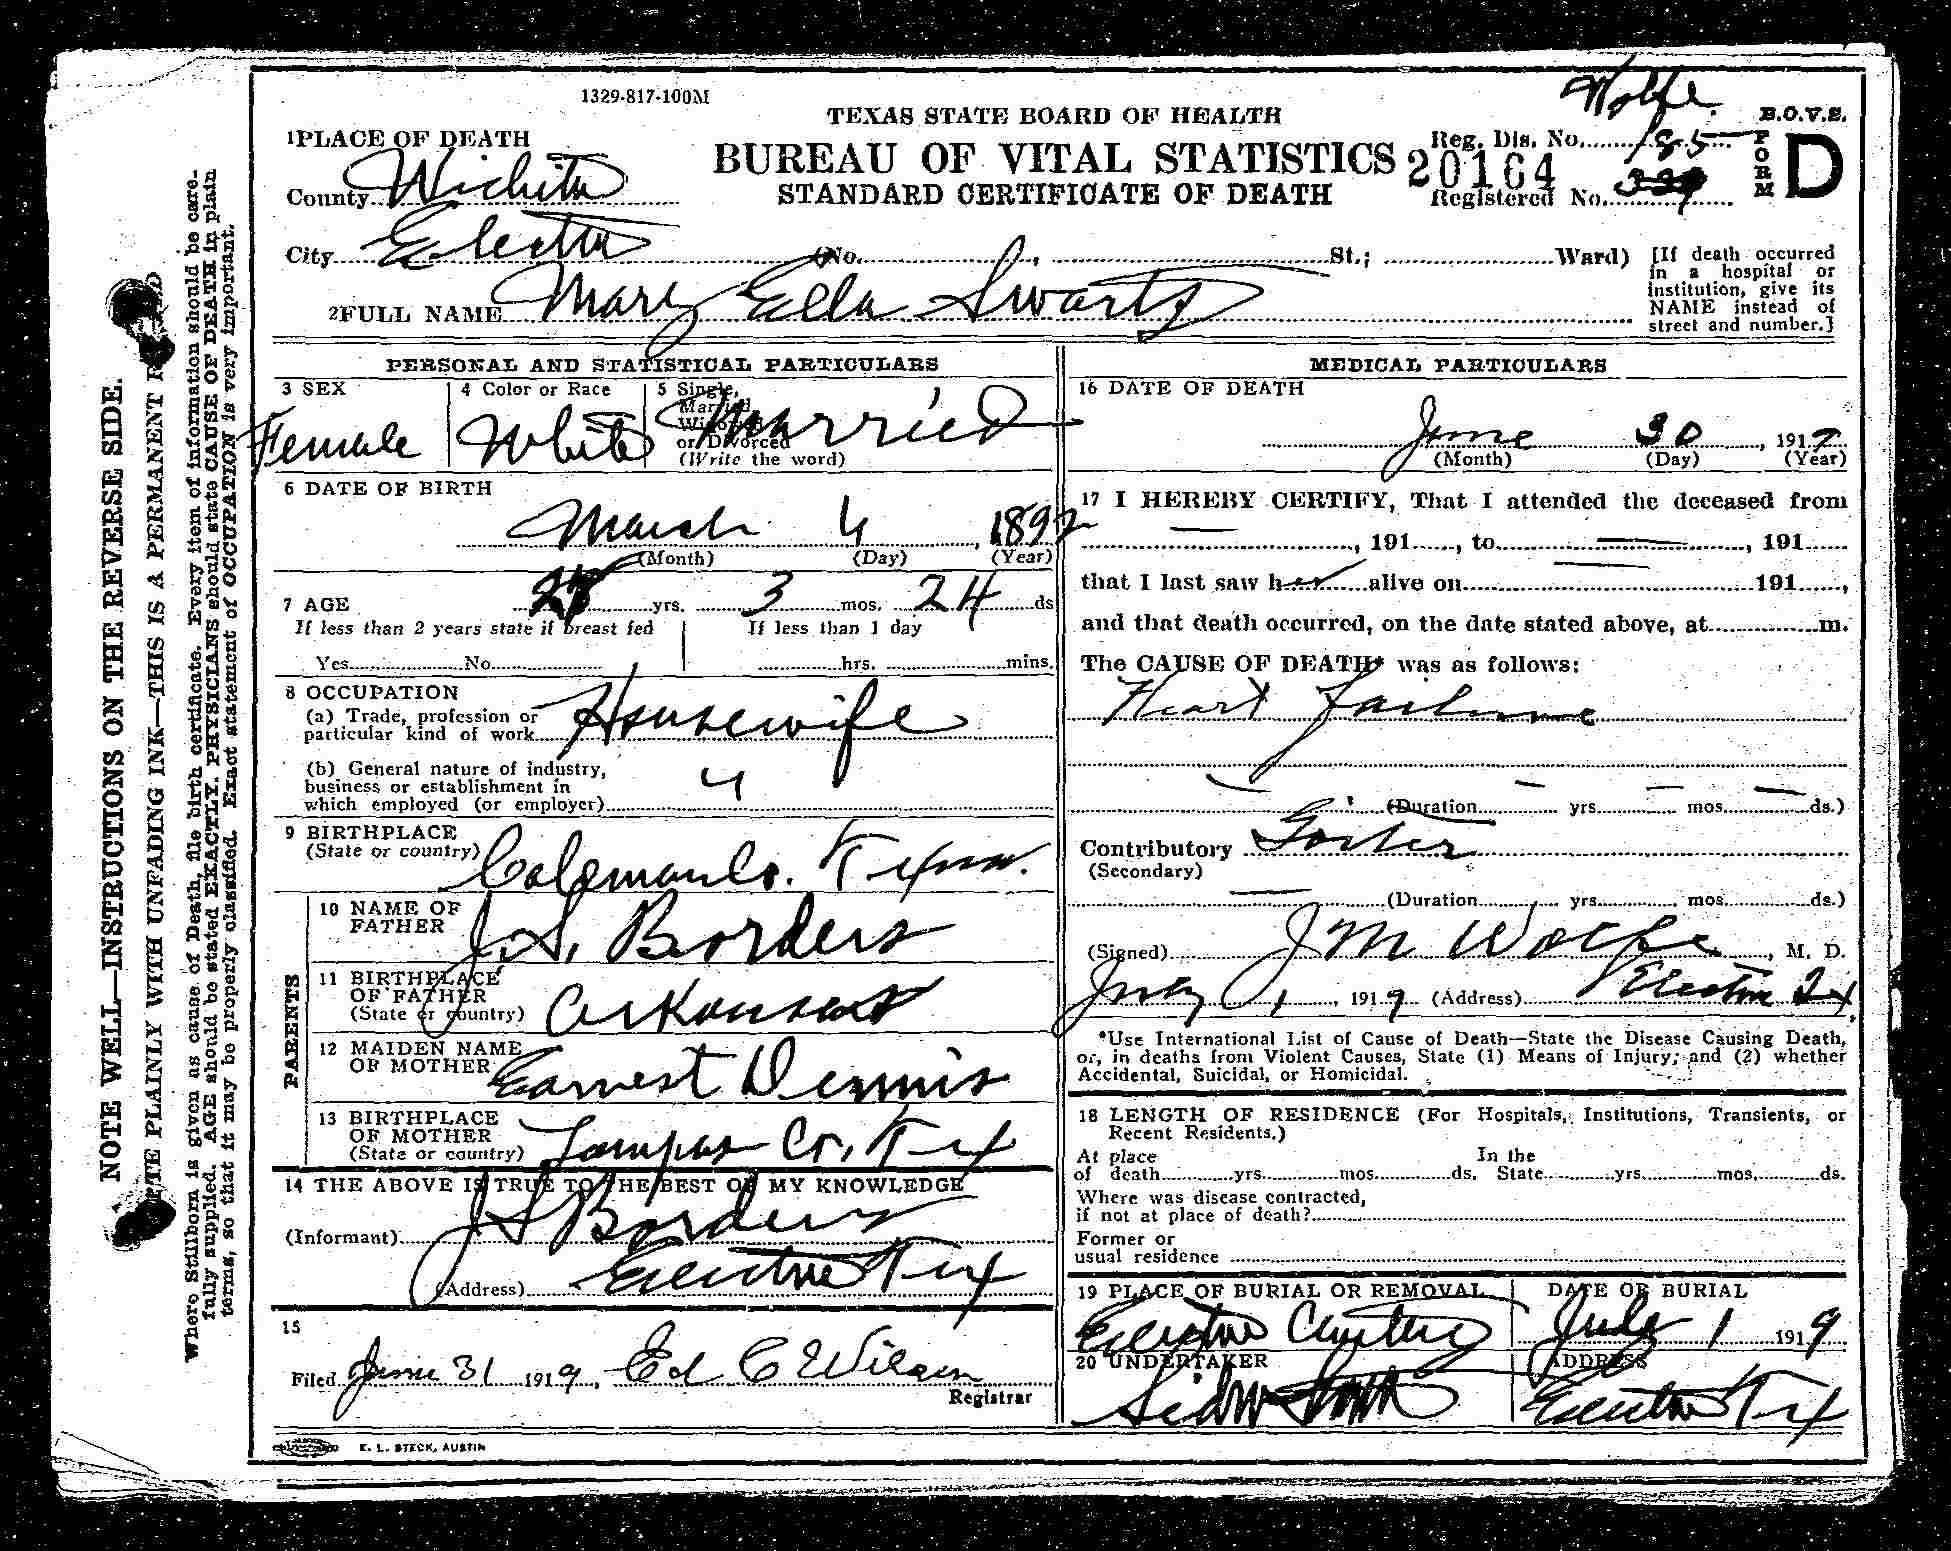 1329-817-100M
Wolfe
TEXAS STATE BOARD OF HEALTH
B.O.V.S.
FORM D
1 PLACE OF DEATH
BUREAU OF VITAL STATISTICS
Reg. Dis. No. 185
20164
STANDARD CERTIFICATE OF DEATH
Registered No.
County Wichita
City Electra (No. , St.; Ward)
[If death occurred
in a hospital or
institution, give its
NAME instead of
street and number.]
2 FULL NAME Mary Ella Swartz
PERSONAL AND STATISTICAL PARTICULARS
3 SEX
Female
4 Color or Race
White
5 Single,
Married
Widowed
or Divorced
(Write the word)
Married
6 DATE OF BIRTH
March 4, 1892
(Month) (Day) (Year)
7 AGE yrs. 3 mos. 24 ds
If less than 2 years state if breast fed
Yes No
If less than 1 day
hrs. mins.
8 OCCUPATION
(a) Trade, profession or
particular kind of work Housewife
(b) General nature of industry,
business or establishment in
which employed (or employer)
4
9 BIRTHPLACE
(State or country) Coleman Co. Texas.
PARENTS
10 NAME OF
FATHER J.S. Borders
11 BIRTHPLACE
OF FATHER
(State or country) Arkansas
12 MAIDEN NAME
OF MOTHER Earnest Dennis
13 BIRTHPLACE
OF MOTHER
(State or country) Lampas Co, Tex
14 THE ABOVE IS TRUE TO THE BEST OF MY KNOWLEDGE
(Informant) J S Borders
(Address) Electra Tex
15
Filed June 31 1919, Ed C Wilson
Registrar
MEDICAL PARTICULARS
16 DATE OF DEATH
June 30, 1919
(Month) (Day) (Year)
17 I HEREBY CERTIFY, That I attended the deceased from
, 191 , to , 191
that I last saw her alive on 191 ,
and that death occurred, on the date stated above, at m.
The CAUSE OF DEATH* was as follows:
Heart Failure
(Duration yrs. mos. ds.)
Contributory Goiter
(Secondary)
(Duration yrs. mos. ds.)
(Signed) J M Wolfe, M. D.
July 1, 1919 (Address) Electra Tx
*Use International List of Cause of Death—State the Disease Causing Death,
or, in deaths from Violent Causes, State (1) Means of Injury; and (2) whether
Accidental, Suicidal, or Homicidal.
18 LENGTH OF RESIDENCE (For Hospitals, Institutions, Transients, or
Recent Residents.)
At place In the
of death yrs. mos. ds. State yrs. mos. ds.
Where was disease contracted,
if not at place of death?
Former or
usual residence
19 PLACE OF BURIAL OR REMOVAL
Electra Cemetery
DATE OF BURIAL
July 1 1919
20 UNDERTAKER
ADDRESS
Electra Tex
E. L. STECK, AUSTIN
NOTE WELL—INSTRUCTIONS ON THE REVERSE SIDE.
PLAINLY WITH UNFADING INK—THIS IS A PERMANENT
Where Stillborn is given as cause of Death, file birth certificate. Every item of information should be care-
fully supplied. AGE should be stated EXACTLY. PHYSICIANS should state CAUSE OF DEATH in plain
terms, so that it may be properly classified. Exact statement of OCCUPATION is very important.